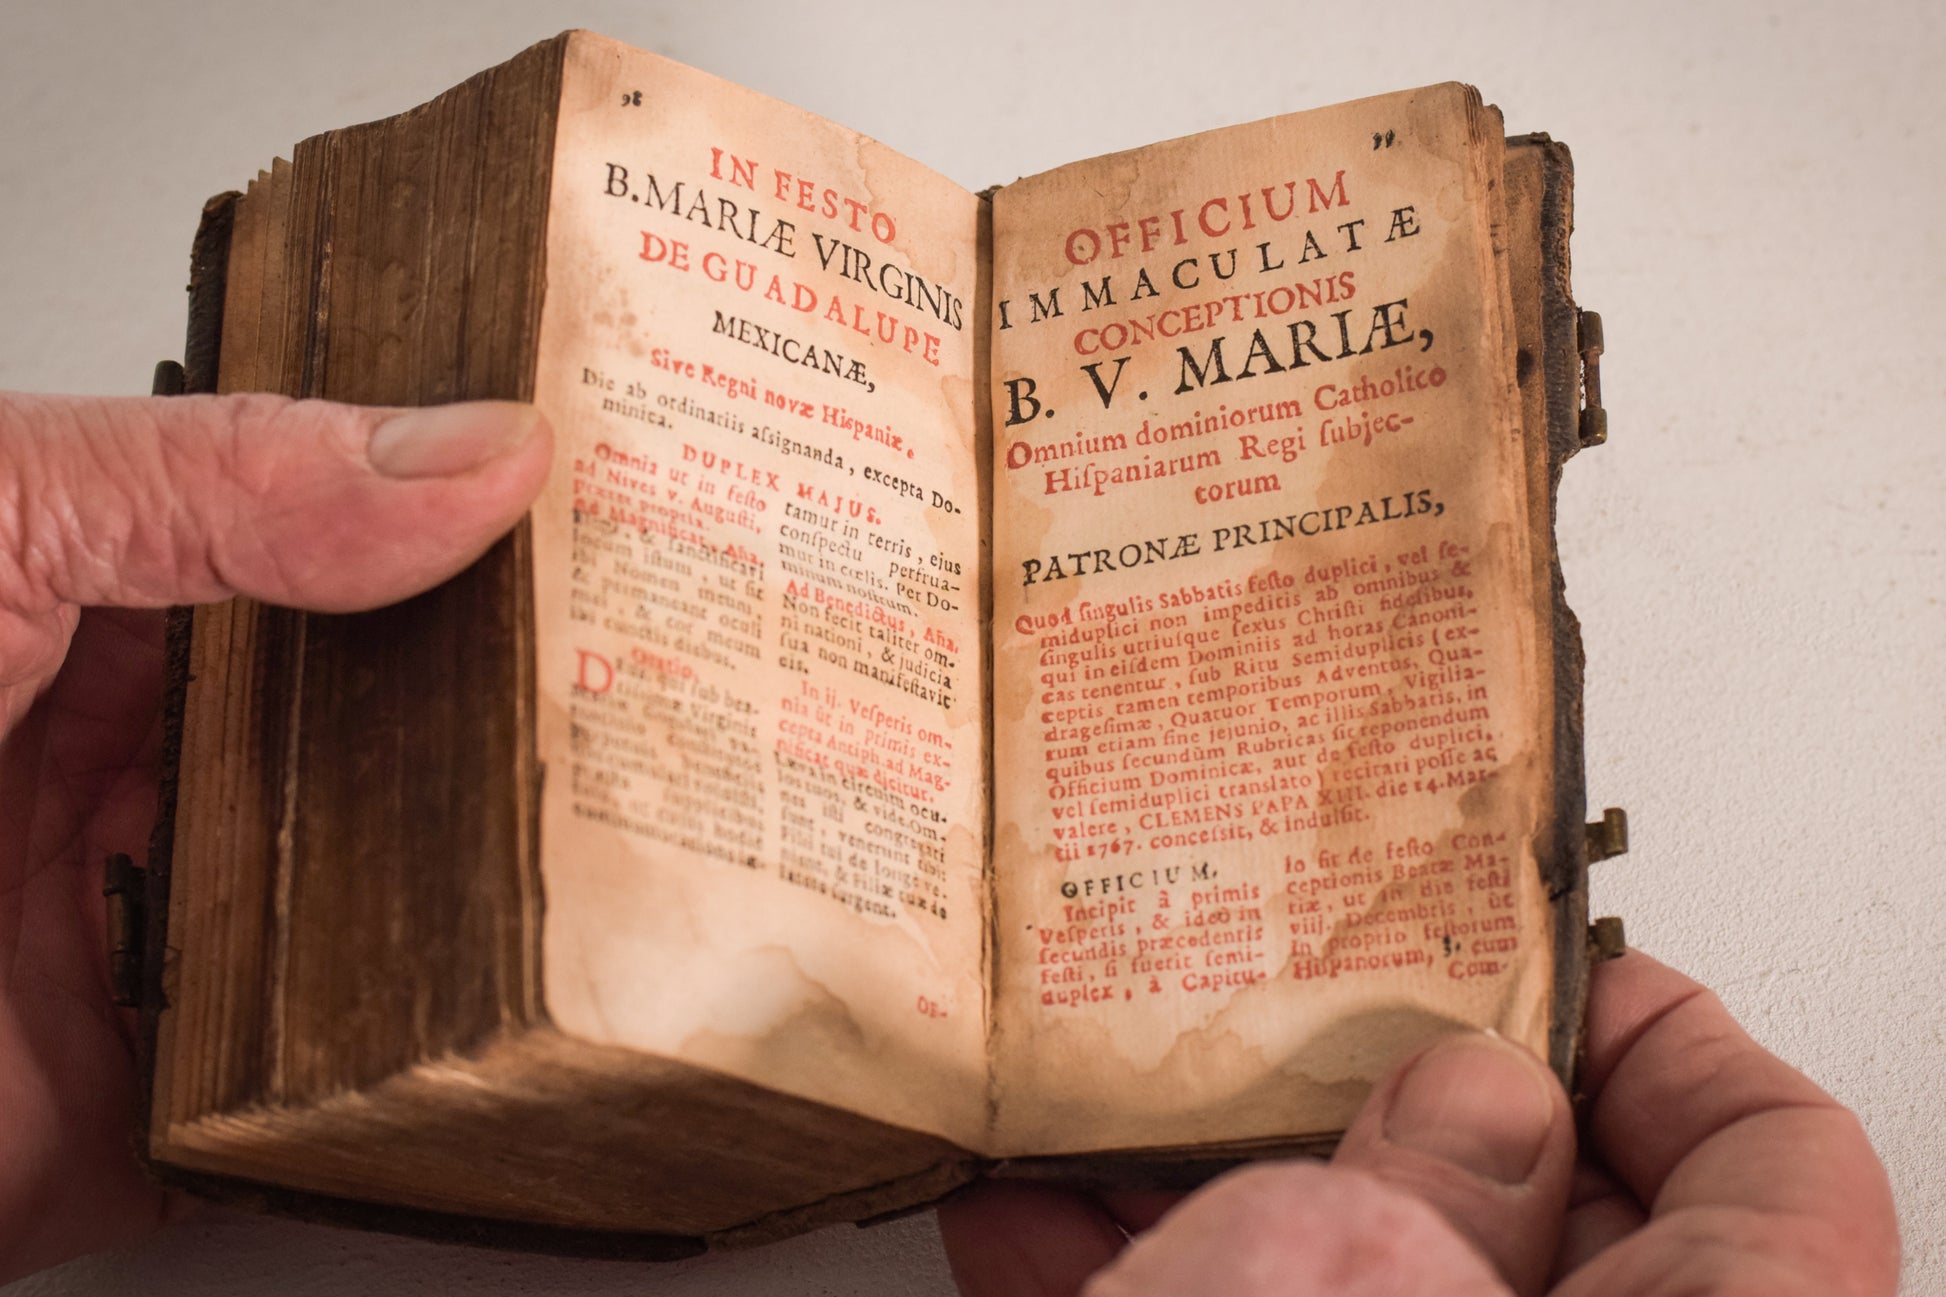 98
IN FESTO
B. MARIÆ VIRGINIS
DE GUADALUPE
MEXICANÆ,
Sive Regni novæ Hispaniæ.
Die ab ordinariis aſsignanda, excepta Do-
minica.
DUPLEX MAJUS.
Omnia ut in feſto
ad Nives v. Auguſti,
præter propria.
Ad Magnificat, Aña.
Elegi, & ſanctificavi
locum iſtum, ut ſit
ibi Nomen meum,
& permaneant oculi
mei, & cor meum
ibi cunctis diebus.
Oratio.
Deus, qui ſub bea-
Virginis
tamur in terris, ejus
conſpectu perfrua-
mur in cœlis. Per Do-
minum noſtrum.
Ad Benedictus, Aña.
Non fecit taliter om-
ni nationi, & judicia
ſua non manifeſtavit
eis.
In ij. Veſperis om-
nia ut in primis ex-
cepta Antiph. ad Mag-
nificat quæ dicitur.
Leva in circuitu ocu-
los tuos, & vide. Om-
nes iſti congregati
ſunt, venerunt tibi:
Filii tui de longe ve-
nient, & Filiæ tuæ de
latere ſurgent.
OF-
99
OFFICIUM
IMMACULATÆ
CONCEPTIONIS
B. V. MARIÆ,
Omnium dominiorum Catholico
Hiſpaniarum Regi ſubjec-
torum
PATRONÆ PRINCIPALIS,
Quod ſingulis Sabbatis feſto duplici, vel ſe-
miduplici non impeditis ab omnibus &
ſingulis utriuſque ſexus Chriſti fidelibus,
qui in eiſdem Dominiis ad horas Canoni-
cas tenentur, ſub Ritu Semiduplicis (ex-
ceptis tamen temporibus Adventus, Qua-
drageſimæ, Quatuor Temporum, Vigilia-
rum etiam ſine jejunio, ac illis Sabbatis, in
quibus ſecundùm Rubricas ſit reponendum
Officium Dominicæ, aut de feſto duplici,
vel ſemiduplici translato) recitari poſſe ac
valere, CLEMENS PAPA XIII. die 14. Mar-
tii 1767. conceſsit, & indulſit.
OFFICIUM.
Incipit à primis
Veſperis, & ideò in
ſecundis præcedentis
feſti, ſi fuerit ſemi-
duplex, à Capitu-
lo fit de feſto Con-
ceptionis Beatæ Ma-
riæ, ut in die feſti
viij. Decembris, ùt
in proprio feſtorum
Hiſpanorum, 3. cum
Com-